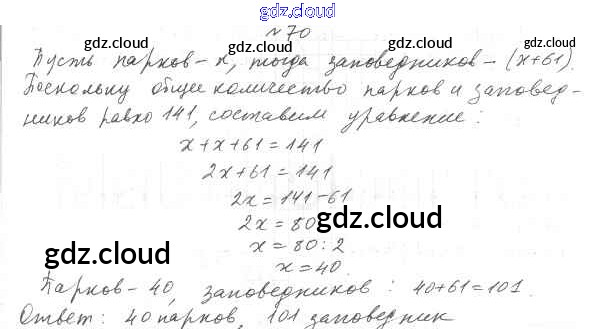 gdz.cloud
№ 70
gdz.cloud gdz.cloud
Пусть парков - x, тогда заповедников - (x+61).
Поскольку общее количество парков и заповед-
ников равно 141, составим уравнение:
x + x + 61 = 141
2x + 61 = 141
2x = 141 - 61
2x = 80
gdz.cloud
x = 80 : 2
gdz.cloud
x = 40.
gdz.cloud
Парков - 40, заповедников : 40 + 61 = 101.
Ответ: 40 парков, 101 заповедник
gdz.cloud